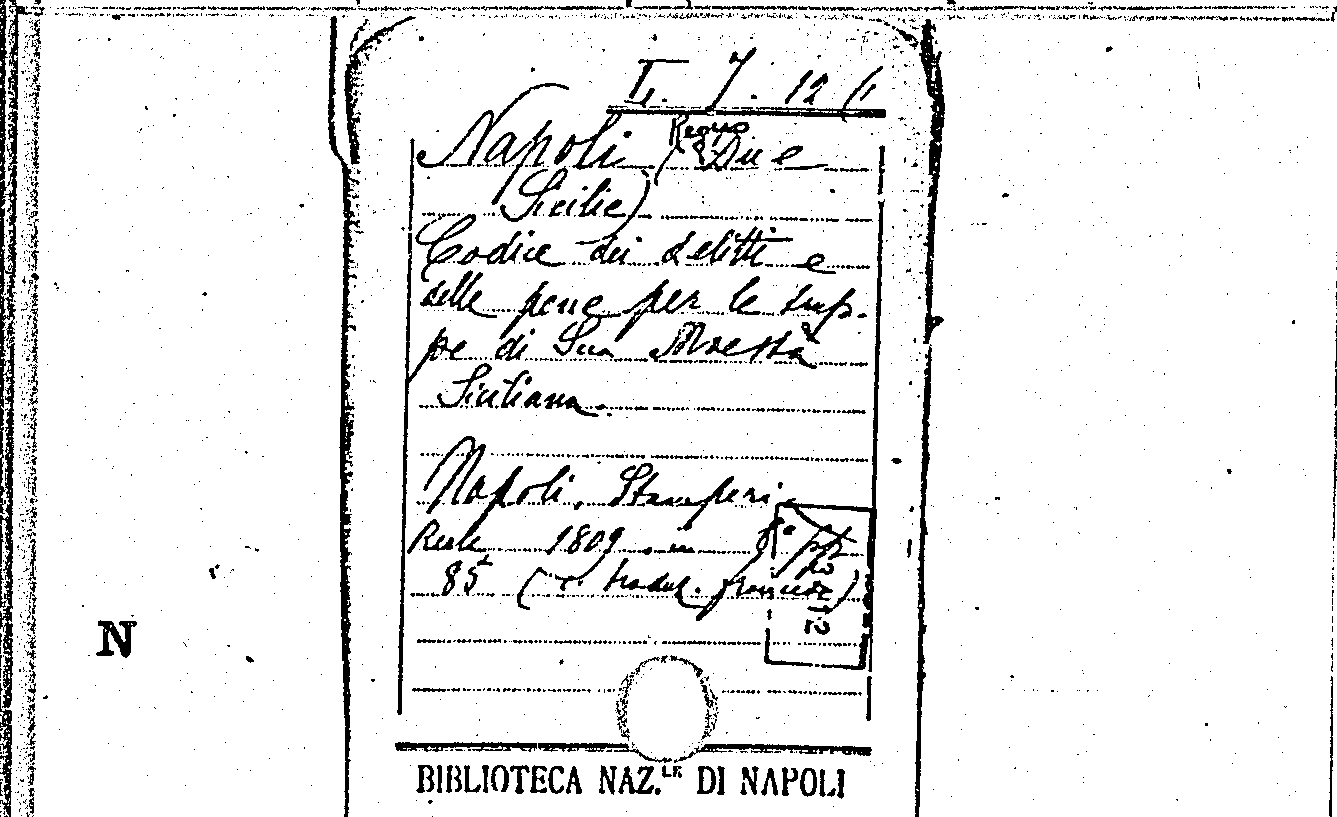 L. J. 12 (1
Napoli (Regno Due
Sicilie)
Codice dei delitti e
delle pene per le trup-
pe di Sua Maestà
Siciliana.
Napoli, Stamperi
Reale 1809. in f.° pp
85 (c. traduz. francese)
N
BIBLIOTECA NAZ.LE DI NAPOLI